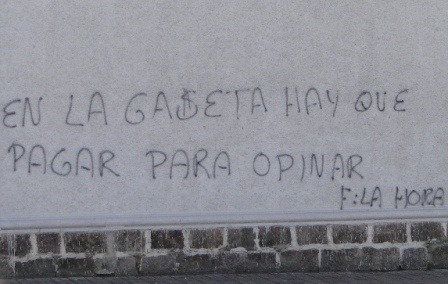 EN LA GA$ETA HAY QUE
PAGAR PARA OPINAR
F:LA HORA